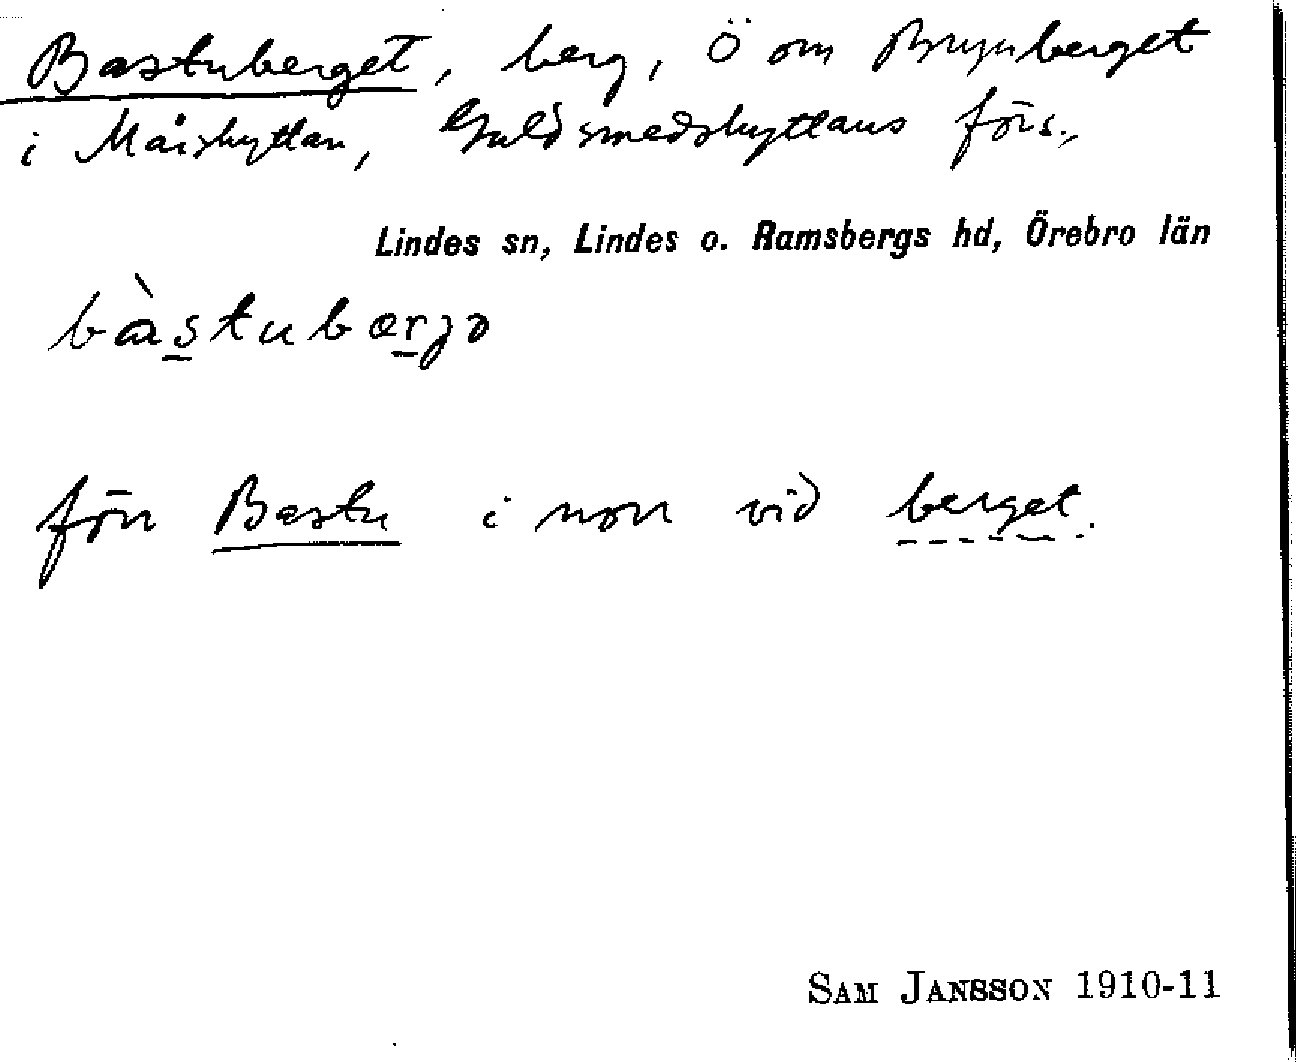 Bastuberget, berg, Ö om Brynberget
i Mårshyttan, Guldsmedshyttans förs.,
Lindes sn, Lindes o. Ramsbergs hd, Örebro län
bàstubærjə
förr Bastu i norr vid berget.
SAM JANSSON 1910-11